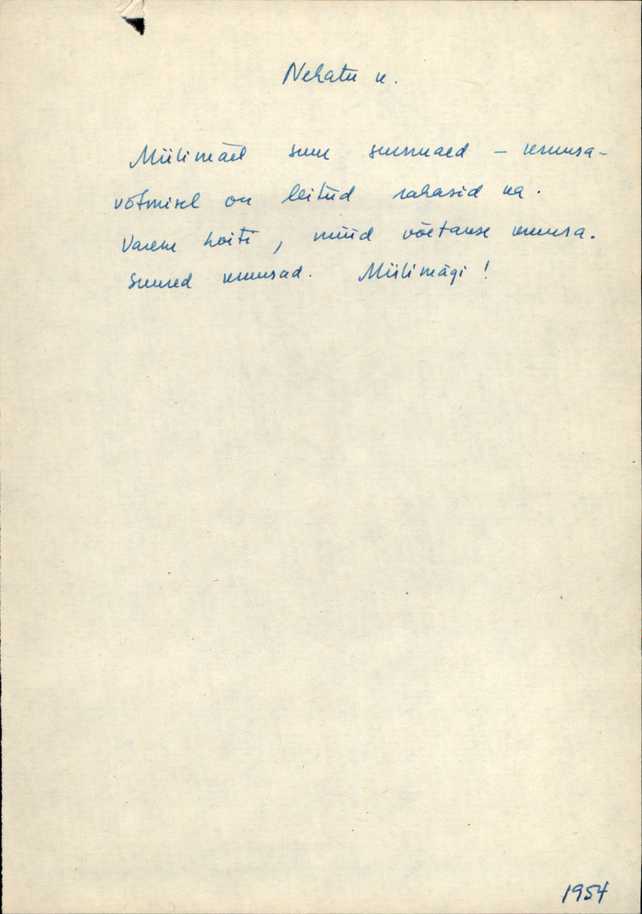 Nehatu k.
Miilimäel suur surnuaed – kruusa-
võtmisel on leitud rahasid ka.
Varem hoiti, nüüd võetakse kruusa.
Suured kruusad. Miilimägi!
1954